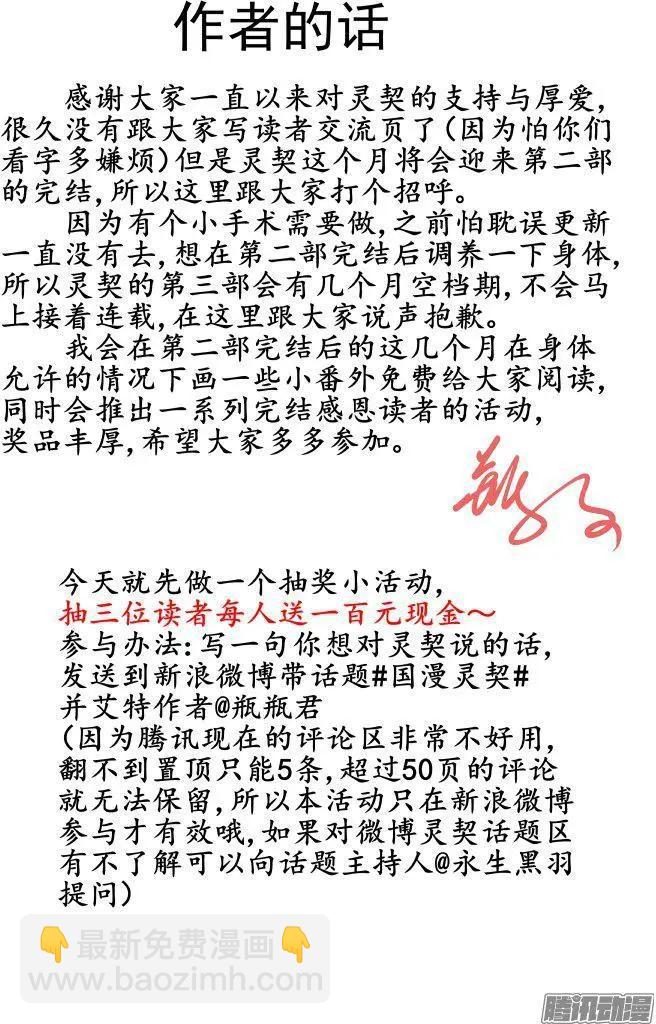 作者的话
感谢大家一直以来对灵契的支持与厚爱,
很久没有跟大家写读者交流页了(因为怕你们
看字多嫌烦)但是灵契这个月将会迎来第二部
的完结,所以这里跟大家打个招呼。
因为有个小手术需要做,之前怕耽误更新
一直没有去,想在第二部完结后调养一下身体,
所以灵契的第三部会有几个月空档期,不会马
上接着连载,在这里跟大家说声抱歉。
我会在第二部完结后的这几个月在身体
允许的情况下画一些小番外免费给大家阅读,
同时会推出一系列完结感恩读者的活动,
奖品丰厚,希望大家多多参加。
今天就先做一个抽奖小活动,
抽三位读者每人送一百元现金~
参与办法:写一句你想对灵契说的话,
发送到新浪微博带话题#国漫灵契#
并艾特作者@瓶瓶君
(因为腾讯现在的评论区非常不好用,
翻不到置顶只能5条,超过50页的评论
就无法保留,所以本活动只在新浪微博
参与才有效哦,如果对微博灵契话题区
有不了解可以向话题主持人@永生黑羽
提问)
👇最新免费漫画👇
www.baozimh.com
腾讯动漫